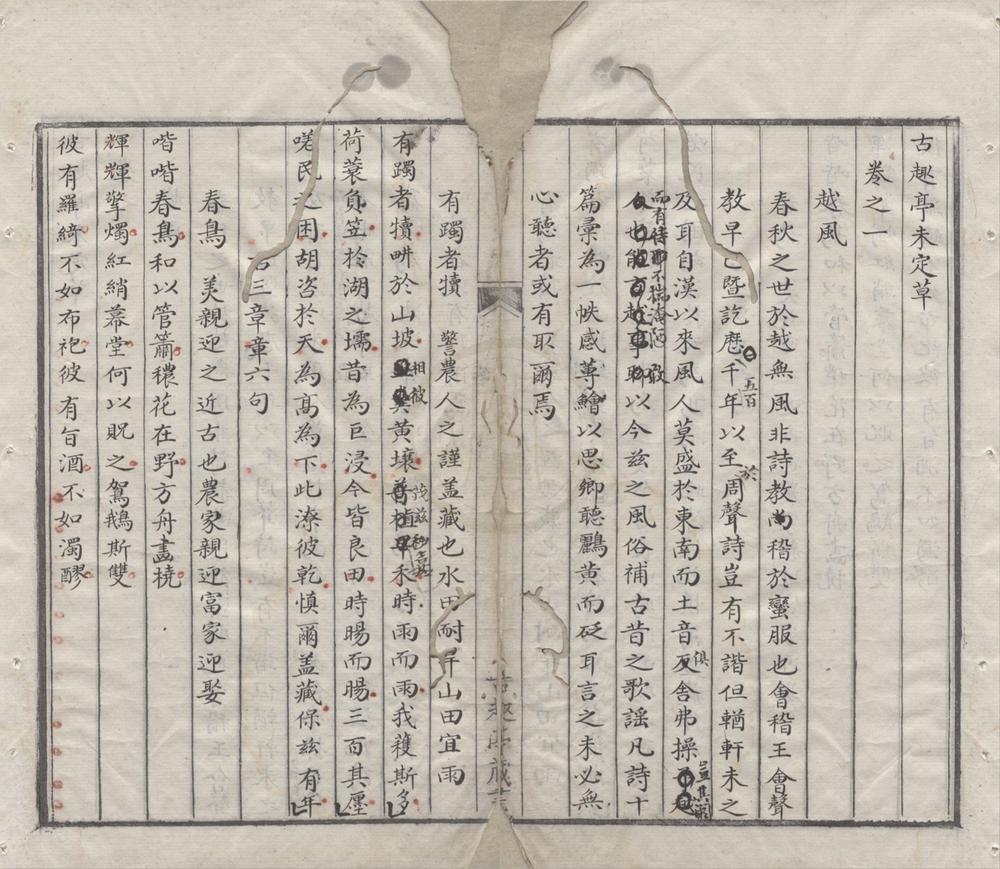 古趣亭未定草
卷之一
越風
春秋之世於越無風非詩教尚稽於蠻服也會稽王會聲
教早已暨訖歷千五百年以至於周聲詩豈有不諧但輶軒未之
及耳自漢以來風人莫盛於東南而土音反俱舍弗操豈其
而有待耶不揣敢
聊以今茲之風俗補古昔之歌謠凡詩十
篇彙為一帙感蓴鱠以思鄉聽鸝黃而砭耳言之未必無
心聽者或有取爾焉
有躅者犢 警農人之謹盖藏也水田耐旱山田宜雨
有躅者犢畊於山坡相彼黃壤茂茲禾時雨而雨我穫斯多
荷蓑負笠於湖之壖昔為巨浸今皆良田時暘而暘三百其廛
嗟民之困胡咨於天為髙為下此潦彼乾慎爾盖藏保茲有年
三章章六句
春鳥 美親迎之近古也農家親迎富家迎娶
喈喈春鳥和以管簫穠花在野方舟畫橈
輝輝擎燭紅綃幕堂何以貺之駕鵝斯雙
彼有羅綺不如布袍彼有旨酒不如濁醪